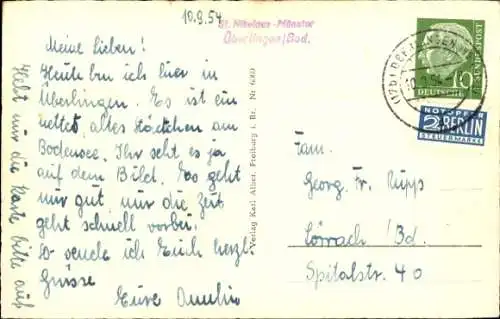 10.9.54
St. Nikolaus-Münster
Überlingen/Bad.
Meine Lieben!
Heute bin ich hier in
Überlingen. Es ist ein
nettes, altes Städtchen am
Bodensee. Ihr seht es ja
auf dem Bild. Es geht
mir gut, nur die Zeit
geht schnell vorbei.
So sende ich Euch herzl.
Grüsse
Eure
Hebt mir die Karte bitte auf
Verlag Karl Alber, Freiburg i. Br.
(17b) ÜBERLINGEN
10
DEUTSCHE BUNDESPOST
NOTOPFER
2 BERLIN
STEUERMARKE
Fam.
Georg. Fr. Rupp
Lörrach / Bd.
Spitalstr. 40